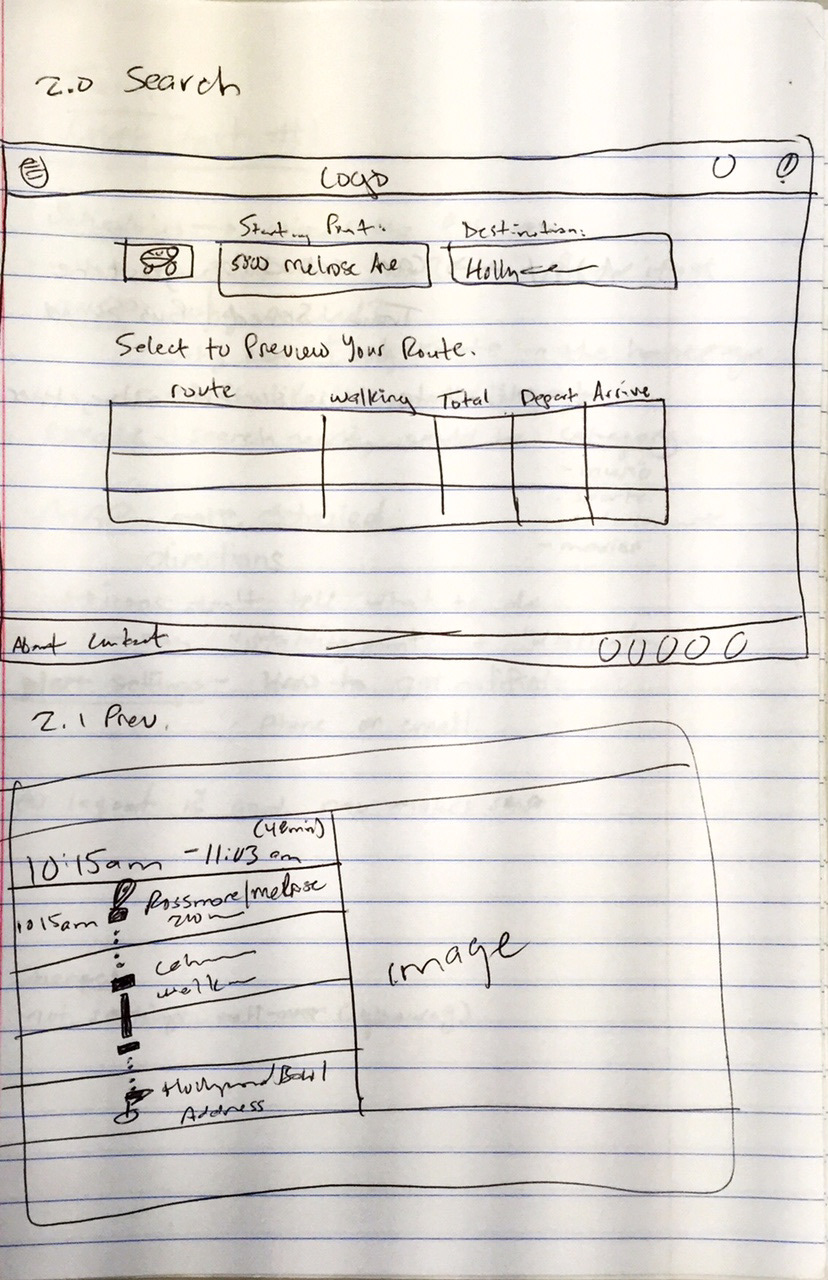 2.0 Search
LOGO
Starting Point: Destination:
5800 Melrose Ave Holly
Select to Preview Your Route.
route walking Total Depart Arrive
About Contact
2.1 Prev.
(48min)
10:15am - 11:03 am
Rossmore/Melrose
10:15am
walk
Hollywood Bowl
Address
image